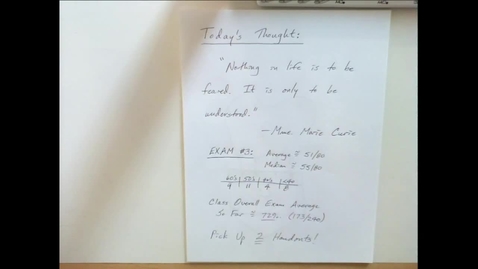 Today's Thought:
"Nothing in life is to be
feared. It is only to be
understood."
— Mme. Marie Curie
EXAM #3:
Average = 51/80
Median = 55/80
4 11 4 8
Class Overall Exam Average
So Far = 72%
Pick Up 2 Handouts!